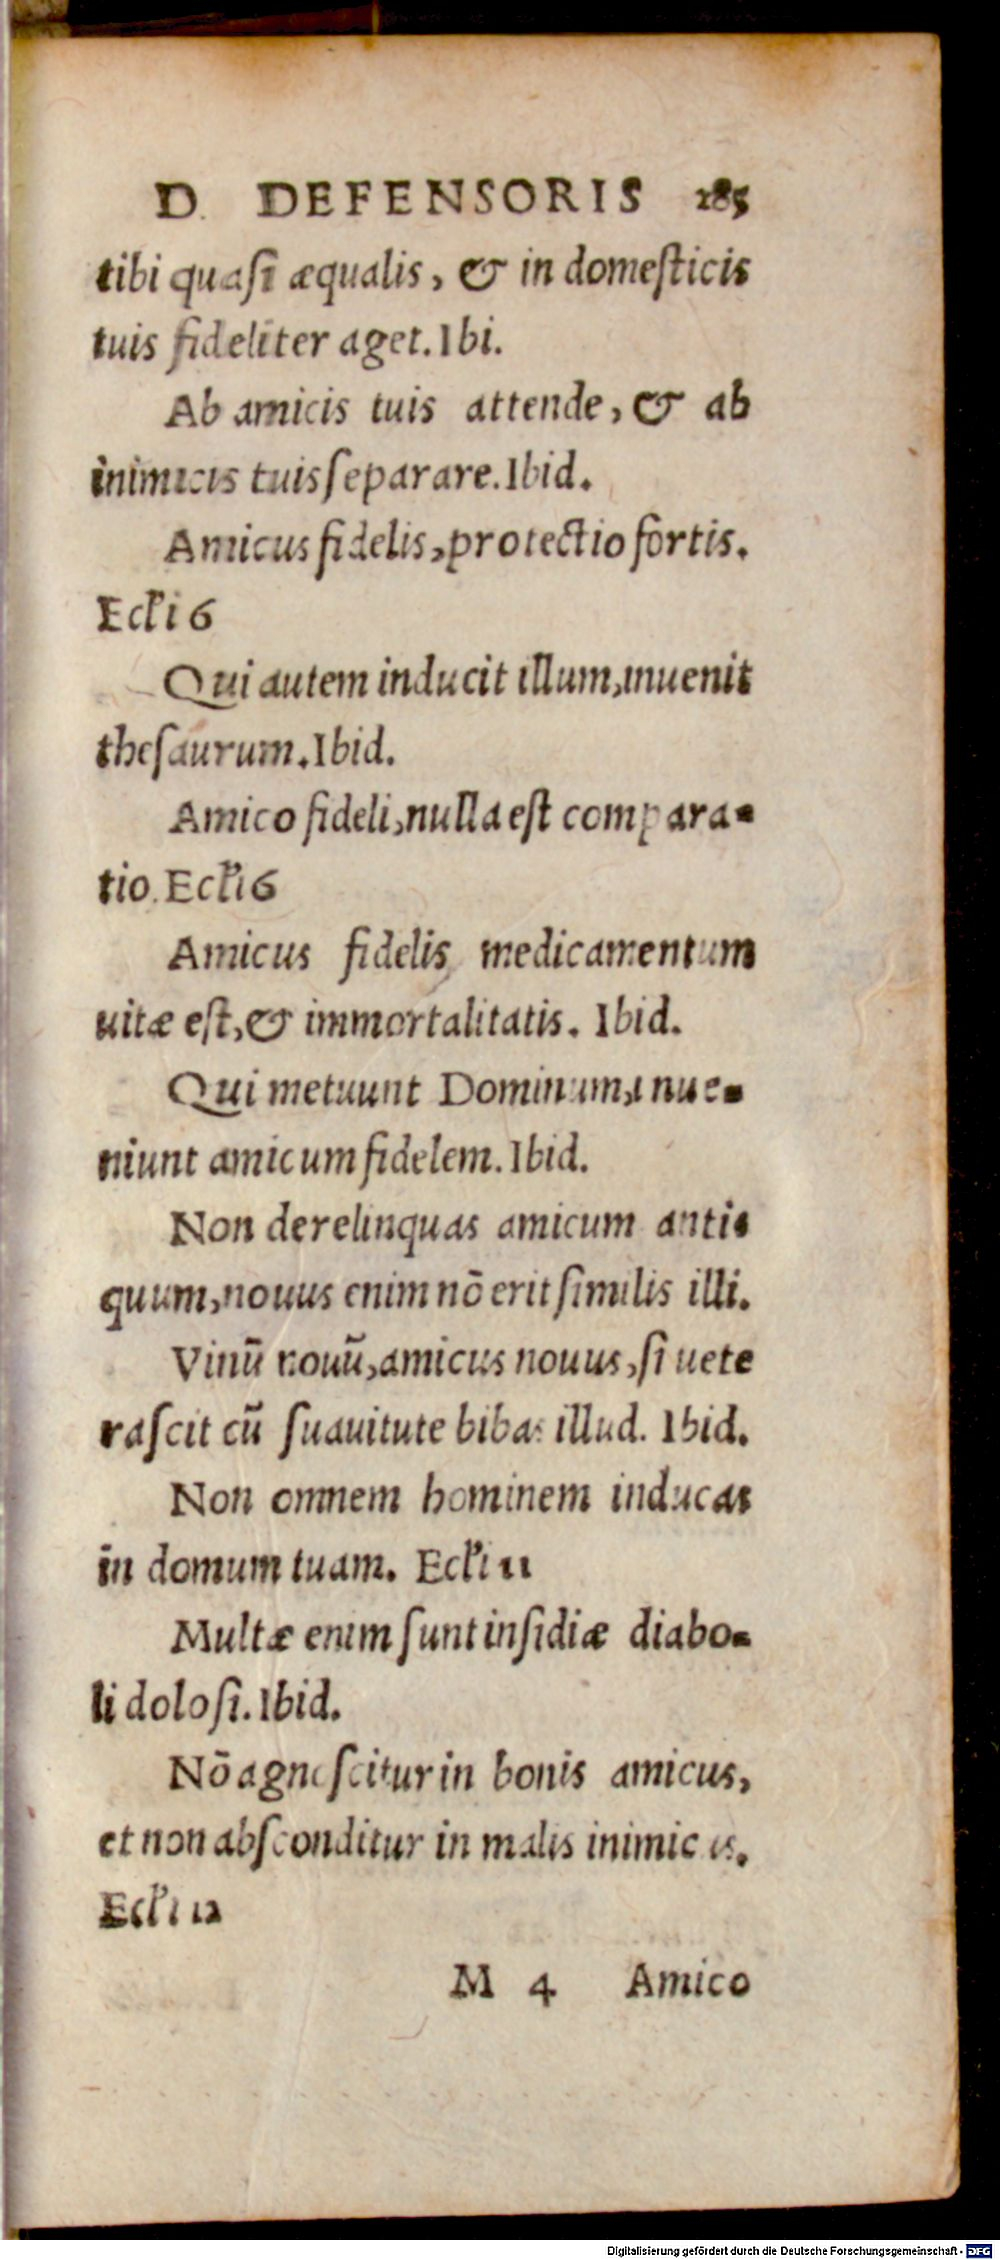 D. DEFENSORIS 185
tibi quasi æqualis, & in domesticis
tuis fideliter aget. Ibi.
Ab amicis tuis attende, & ab
inimicis tuis separare. Ibid.
Amicus fidelis, protectio fortis.
Eccl̃i 6
Qui autem inducit illum, inuenit
thesaurum. Ibid.
Amico fideli, nulla est compara-
tio. Ecl̃i 6
Amicus fidelis medicamentum
uitæ est, & immortalitatis. Ibid.
Qui metuunt Dominum, inue-
niunt amicum fidelem. Ibid.
Non derelinquas amicum anti-
quum, nouus enim nō erit similis illi.
Vinũ nouũ, amicus nouus, si uete
rascit cũ suauitute bibas illud. Ibid.
Non omnem hominem inducas
in domum tuam. Ecl̃i 11
Multæ enim sunt insidiæ diabo-
li dolosi. Ibid.
Nō agnoscitur in bonis amicus,
et non absconditur in malis inimicus.
Ecl̃i 12
M 4 Amico
Digitalisierung gefördert durch die Deutsche Forschungsgemeinschaft - DFG